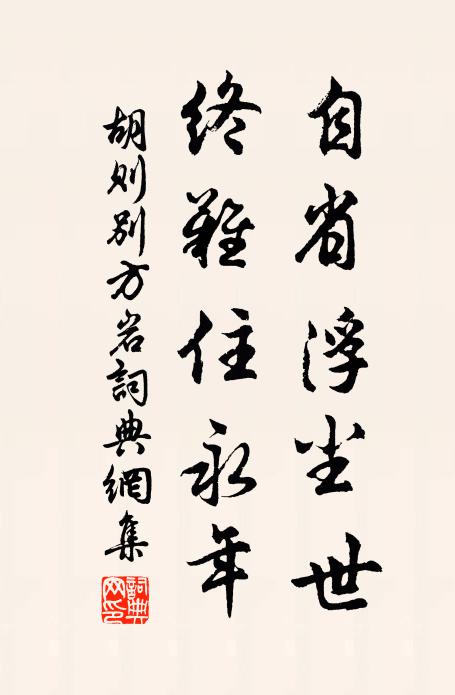 自省浮尘世
终难住永年
胡则别方岩詞典網集
詞典网印